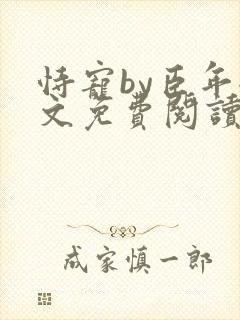 恃寵by臣年
文免費閱讀
成家慎一郎